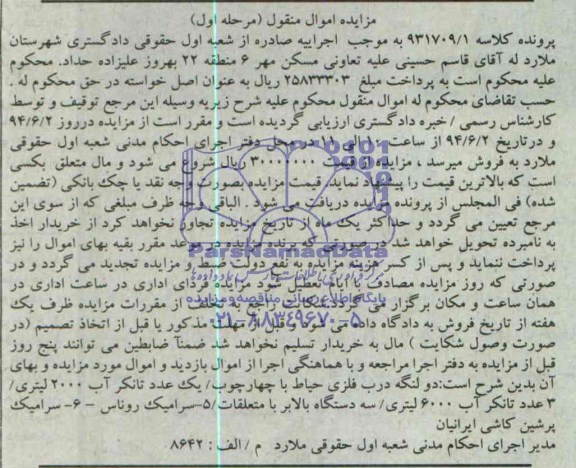 مزایده اموال منقول (مرحله اول)
پرونده کلاسه ۹۳۱۷۰۹/۱ به موجب اجراییه صادره از شعبه اول حقوقی دادگستری شهرستان
ملارد له آقای قاسم حسینی علیه تعاونی مسکن مهر ۶ منطقه ۲۲ بهروز علیزاده حداد. محکوم
علیه محکوم است به پرداخت مبلغ ۲۵۸۳۳۳۰۳ ریال به عنوان اصل خواسته در حق محکوم له .
حسب تقاضای محکوم له اموال منقول محکوم علیه شرح زیربه وسیله این مرجع توقیف و توسط
کارشناس رسمی / خبره دادگستری ارزیابی گردیده است و مقرر است از مزایده درروز ۹۴/۶/۲
و درتاریخ ۹۴/۶/۲ از ساعت ۱۰ الی ۱۱ در محل دفتر اجرای احکام مدنی شعبه اول حقوقی
ملارد به فروش میرسد ، مزایده از قیمت ۳۰۰۰۰۰۰۰ ریال شروع می شود و مال متعلق بکسی
است که بالاترین قیمت را پیشنهاد نماید. قیمت مزایده بصورت وجه نقد یا چک بانکی (تضمین
شده) فی المجلس از برنده مزایده دریافت می شود . الباقی وجه ظرف مبلغی که از سوی این
مرجع تعیین می گردد و حداکثر یک ماه از تاریخ مزایده تجاوز نخواهد کرد از خریدار اخذ
به نامبرده تحویل خواهد شد در صورتی که برنده مزایده در موعد مقرر بقیه بهای اموال را نیز
پرداخت ننماید و پس از کسر هزینه مزایده به نفع دولت ضبط و مزایده تجدید می گردد و در
صورتی که روز مزایده مصادف با ایام تعطیل شود مزایده فردای اداری در ساعت اداری در
همان ساعت و مکان برگزار می گردد شکایت راجع به تخلف از مقررات مزایده ظرف یک
هفته از تاریخ فروش به دادگاه داده می شود و قبل از مهلت مذکور یا قبل از اتخاذ تصمیم (در
صورت وصول شکایت ) مال به خریدار تسلیم نخواهد شد ضمناً ضابطین می توانند پنج روز
قبل از مزایده به دفتر اجرا مراجعه و با هماهنگی اجرا از اموال بازدید و اموال مورد مزایده و بهای
آن بدین شرح است:دو لنگه درب فلزی حیاط با چهارچوب/ یک عدد تانکر آب ۲۰۰۰ لیتری/
۳ عدد تانکر آب ۶۰۰۰ لیتری/ سه دستگاه بالابر با متعلقات /۵-سرامیک روناس - ۶- سرامیک
پرشین کاشی ایرانیان
مدیر اجرای احکام مدنی شعبه اول حقوقی ملارد م / الف : ۸۶۴۲
ParsNamadData
پایگاه اطلاع رسانی مناقصه و مزایده
۰۲۱-۸۸۳۴۹۶۷۰-۵